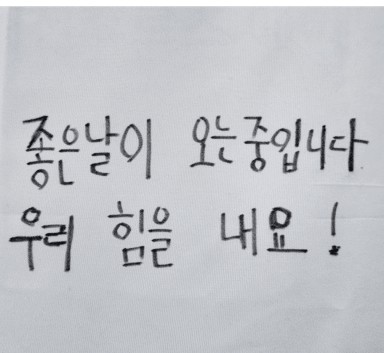 좋은날이 오는중입니다
우리 힘을 내요!